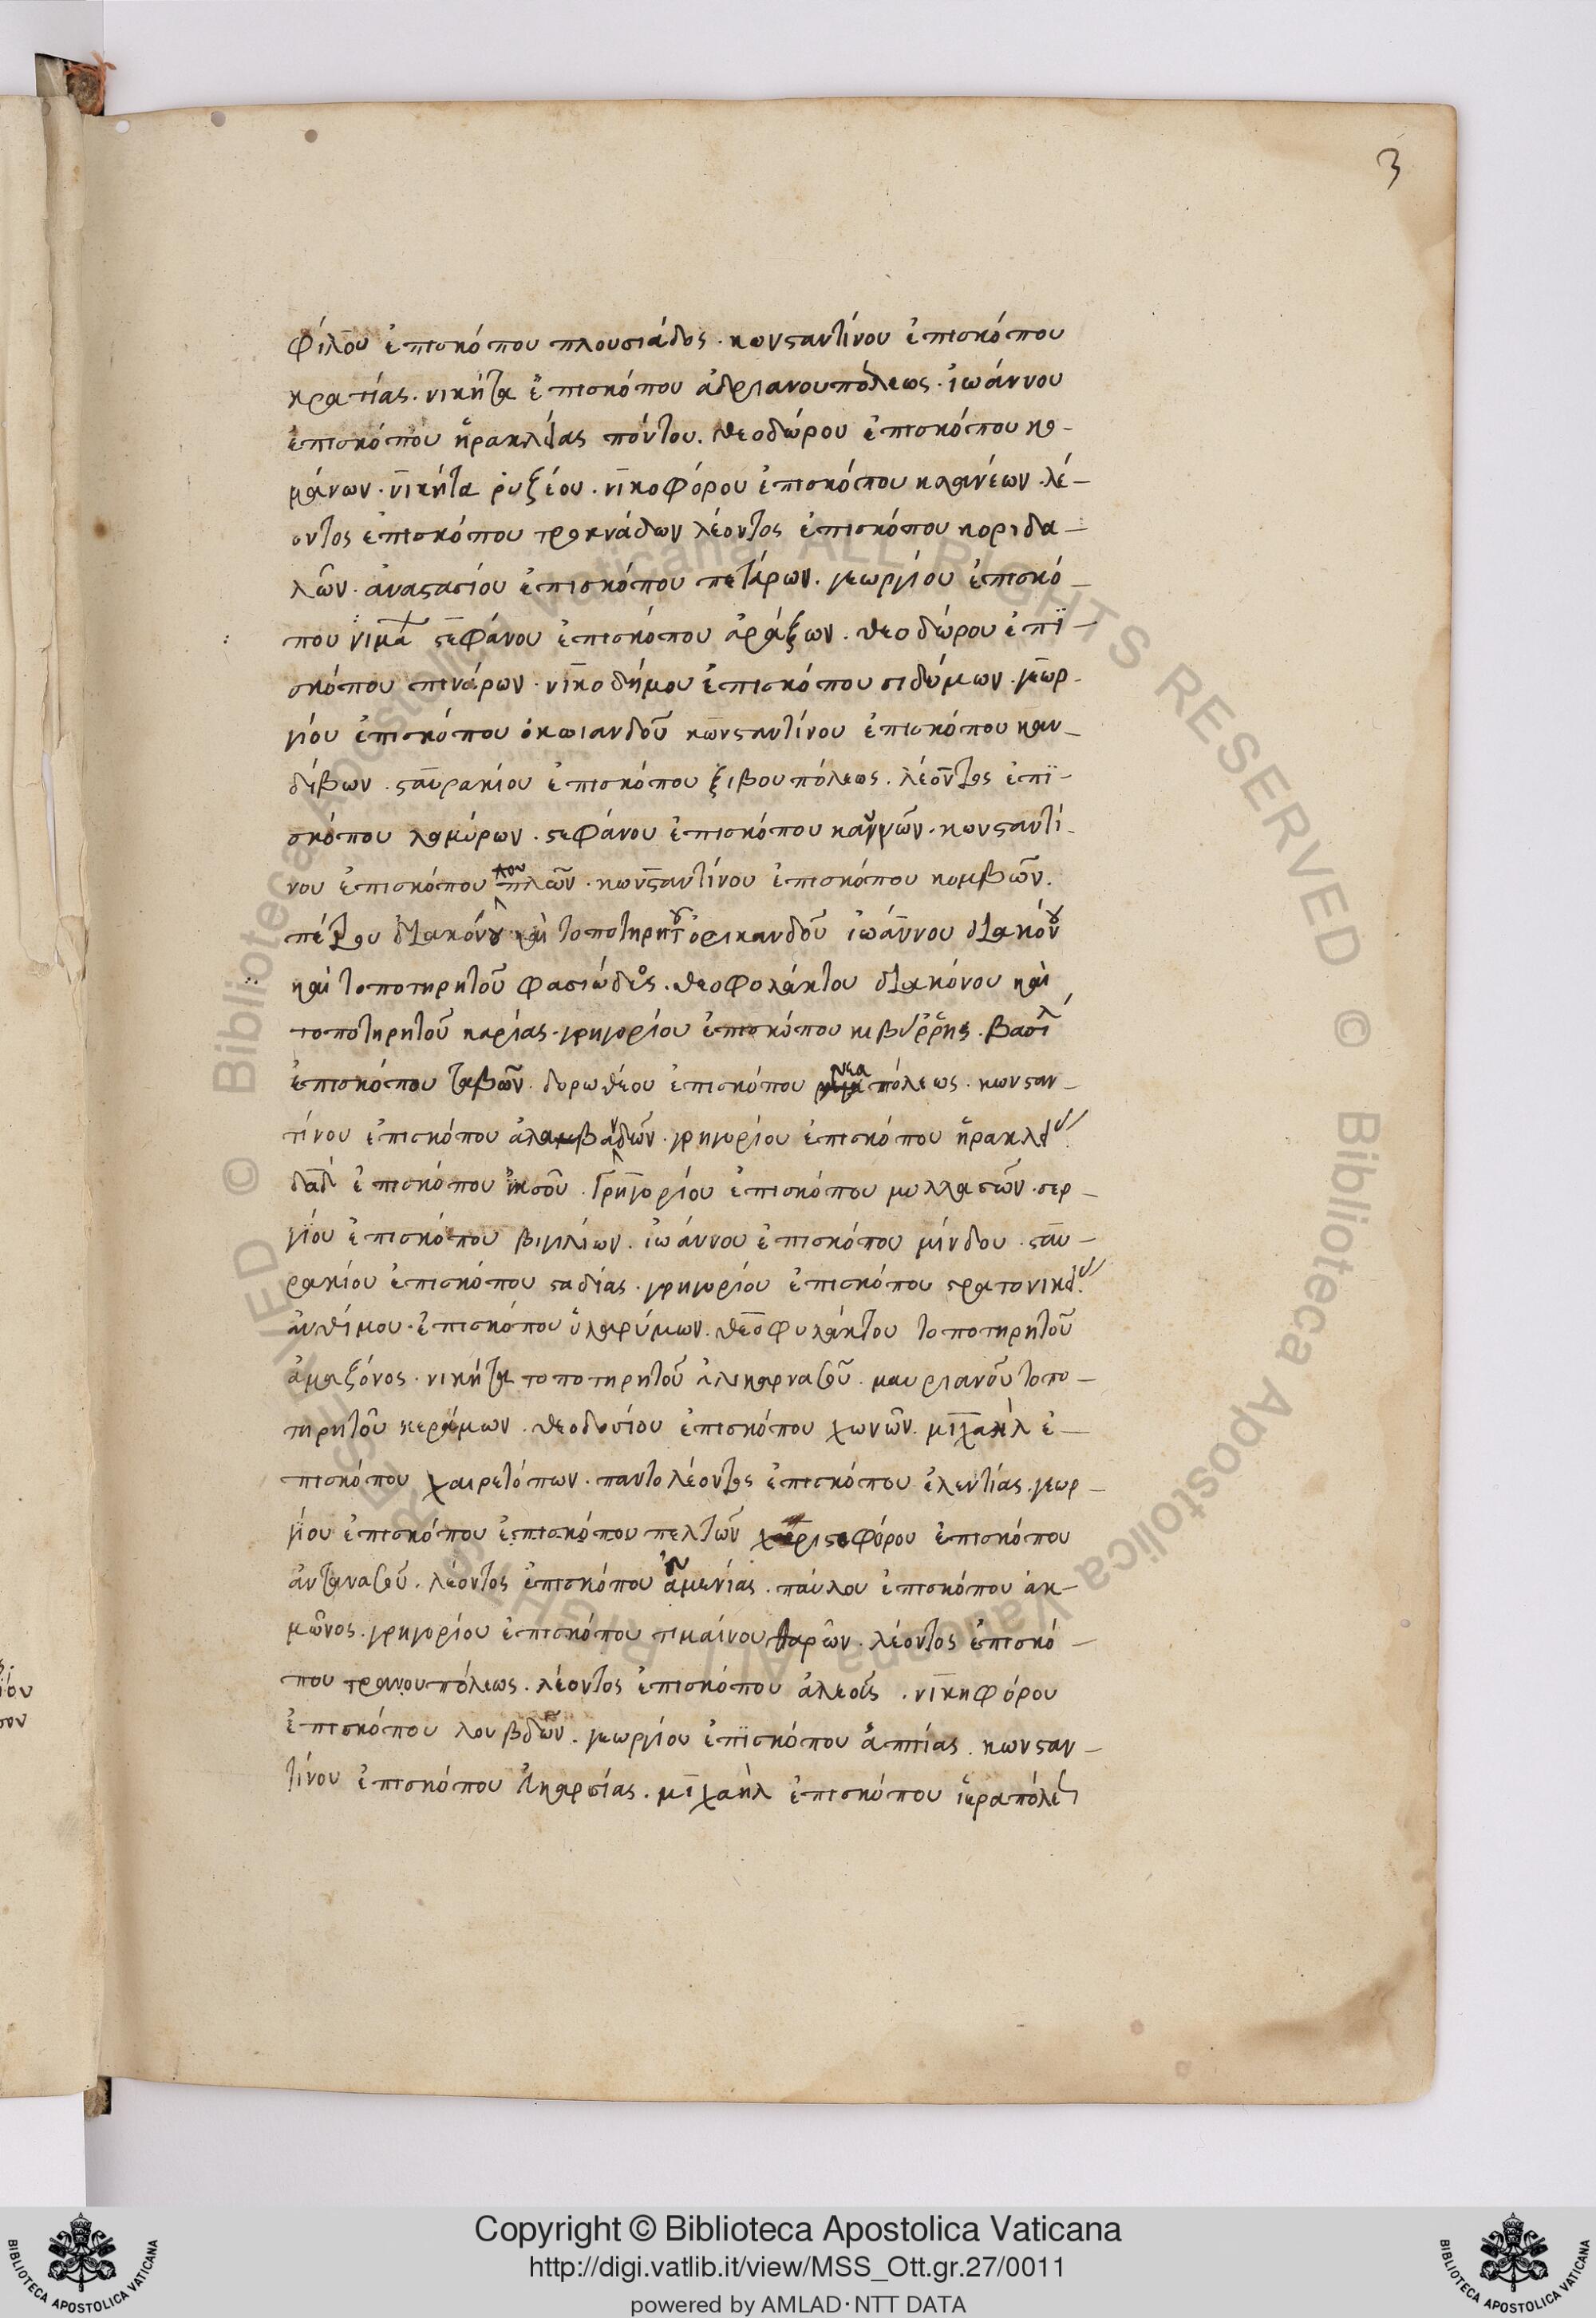 3
φίλου ἐπισκόπου πλουσιάδος. κωνσταντίνου ἐπισκόπου
κρατίας. νικήτα ἐπισκόπου ἀδριανουπόλεως. ἰωάννου
ἐπισκόπου ἡρακλείας πόντου. θεοδώρου ἐπισκόπου κο-
μάνων. νικήτα ῥυζέου. νικοφόρου ἐπισκόπου κλανέων. λέ-
οντος ἐπισκόπου τροκνάδων λέοντος ἐπισκόπου κοριδα-
λῶν. ἀναστασίου ἐπισκόπου πετάρων. γεωργίου ἐπισκό-
που νιμά στεφάνου ἐπισκόπου ἀράξων. θεοδώρου ἐπι-
σκόπου πινάρων. νικοδήμου ἐπισκόπου σιδύμων. γεωρ-
γίου ἐπισκόπου ὀκωιανδοῦ κωνσταντίνου ἐπισκόπου καν-
δίβων. σταυρακίου ἐπισκόπου ξιβουπόλεως. λέοντος ἐπι-
σκόπου λαμύρων. στεφάνου ἐπισκόπου καυνῶν. κωνσταντί-
νου ἐπισκόπου πλῶν. κωνσταντίνου ἐπισκόπου κομβῶν.
πέτρου διακόνου καὶ τοποτηρητοῦ ὀρικανδοῦ ἰωάννου διακόνου
καὶ τοποτηρητοῦ φασιώδος. θεοφυλάκτου διακόνου καὶ
τοποτηρητοῦ καρίας. γρηγορίου ἐπισκόπου κιβύρρης. βασιλ
ἐπισκόπου ταβῶν. δωροθέου ἐπισκόπου νεαπόλεως. κωνσταν-
τίνου ἐπισκόπου ἀλαμβανδῶν. γρηγορίου ἐπισκόπου ἡρακλεί
δαδ ἐπισκόπου ἰασοῦ. Γρηγορίου ἐπισκόπου μυλλασῶν. σερ-
γίου ἐπισκόπου βιγιλίων. ἰωάννου ἐπισκόπου μίνδου. σταυ-
ρακίου ἐπισκόπου σταδίας. γρηγορίου ἐπισκόπου στρατονικεί
ἀνθίμου. ἐπισκόπου ὑλαρύμων. θεοφυλάκτου τοποτηρητοῦ
ἀμαζόνος. νικήτα τοποτηρητοῦ ἁλικαρνασοῦ. μαυριανοῦ τοπο-
τηρητοῦ κεράμων. θεοδοσίου ἐπισκόπου χωνῶν. μιχαὴλ ἐ-
πισκόπου χαιρετόπων. παντολέοντος ἐπισκόπου ἐλεντίας. γεωρ-
γίου ἐπισκόπου ἐπισκόπου πελτῶν χριστοφόρου ἐπισκόπου
ἀντανασοῦ. λέοντος ἐπισκόπου ἀμενίας. παύλου ἐπισκόπου ἀκ-
μῶνος. γρηγορίου ἐπισκόπου τιμαίνου θαρῶν. λέοντος ἐπισκό-
που τρανουπόλεως. λέοντος ἐπισκόπου ἀλεοῖς. νικηφόρου
ἐπισκόπου λουβδῶν. γεωργίου ἐπισκόπου ἀππίας. κωνσταν-
τίνου ἐπισκόπου ἰκαρσίας. μιχαὴλ ἐπισκόπου ἱεραπόλε
Copyright © Biblioteca Apostolica Vaticana
http://digi.vatlib.it/view/MSS_Ott.gr.27/0011
powered by AMLAD·NTT DATA
BIBLIOTECA APOSTOLICA VATICANA
BIBLIOTECA APOSTOLICA VATICANA